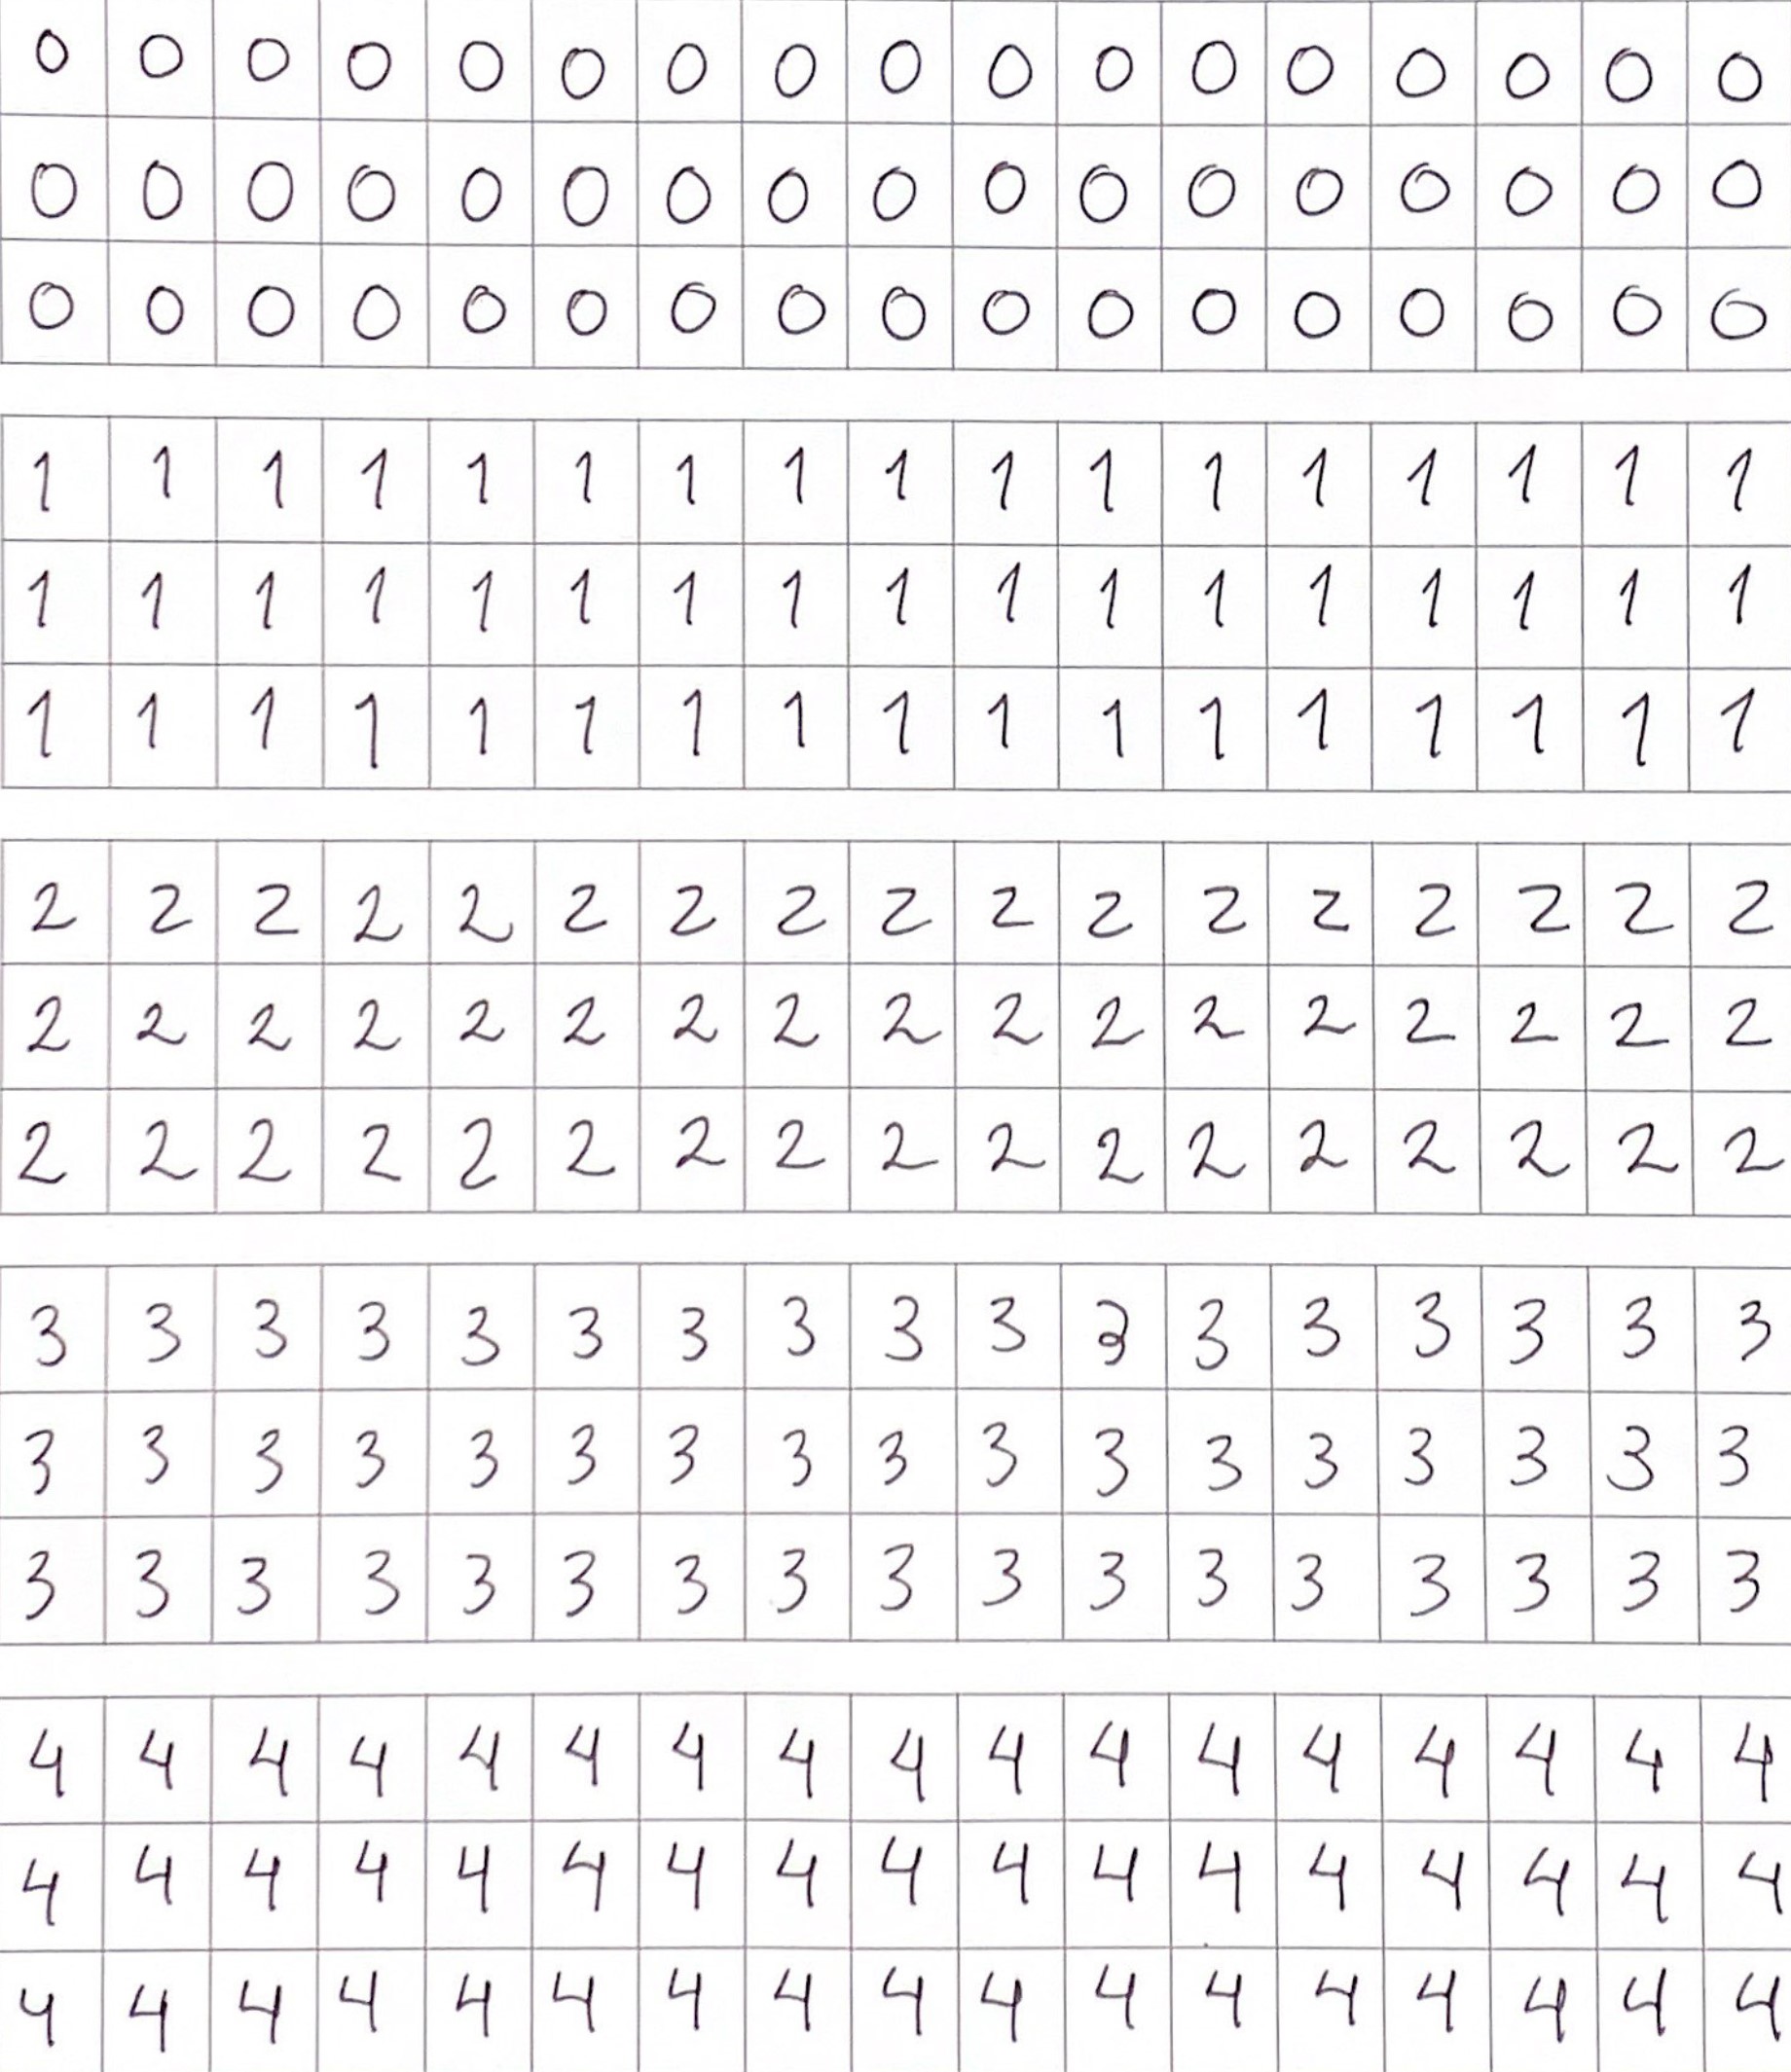 0 0 0 0 0 0 0 0 0 0 0 0 0 0 0 0 0
0 0 0 0 0 0 0 0 0 0 0 0 0 0 0 0 0
0 0 0 0 0 0 0 0 0 0 0 0 0 0 0 0 0
1 1 1 1 1 1 1 1 1 1 1 1 1 1 1 1 1
1 1 1 1 1 1 1 1 1 1 1 1 1 1 1 1 1
1 1 1 1 1 1 1 1 1 1 1 1 1 1 1 1 1
2 2 2 2 2 2 2 2 2 2 2 2 2 2 2 2 2
2 2 2 2 2 2 2 2 2 2 2 2 2 2 2 2 2
2 2 2 2 2 2 2 2 2 2 2 2 2 2 2 2 2
3 3 3 3 3 3 3 3 3 3 3 3 3 3 3 3 3
3 3 3 3 3 3 3 3 3 3 3 3 3 3 3 3 3
3 3 3 3 3 3 3 3 3 3 3 3 3 3 3 3 3
4 4 4 4 4 4 4 4 4 4 4 4 4 4 4 4 4
4 4 4 4 4 4 4 4 4 4 4 4 4 4 4 4 4
4 4 4 4 4 4 4 4 4 4 4 4 4 4 4 4 4